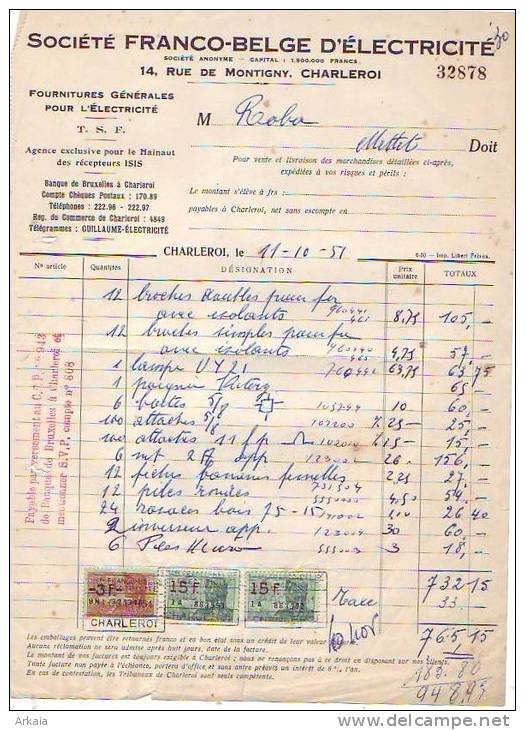 SOCIÉTÉ FRANCO-BELGE D'ÉLECTRICITÉ
SOCIÉTÉ ANONYME — CAPITAL : 1.500.000 FRANCS
14, RUE DE MONTIGNY, CHARLEROI
32878
FOURNITURES GÉNÉRALES
POUR L'ÉLECTRICITÉ
T. S. F.
Agence exclusive pour le Hainaut
des récepteurs ISIS
Banque de Bruxelles à Charleroi
Compte Chèques Postaux : 170.89
Téléphones : 222.96 - 222.97
Reg. du Commerce de Charleroi : 4849
Télégrammes : GUILLAUME-ÉLECTRICITÉ
M
Mettet Doit
Pour vente et livraison des marchandises détaillées ci-après,
expédiées à vos risques et périls :
Le montant s'élève à frs :
payables à Charleroi, net sans escompte en
CHARLEROI, le 11-10-51
6-50 - Imp. Libert Frères.
No article Quantités DÉSIGNATION Prix unitaire TOTAUX
12 broches doubles pour fer
avec isolants 8,75 105,-
12 broches simples pour fer
avec isolants 4,75 57,-
1 lampe UY21 63,75 63 75
1 65,-
6 boîtes 5/8 10 60,-
100 attaches 5/8 % 25 25,-
100 attaches 11 fp % 15 15,-
6 app 26 156,-
12 fiches bananes femelles 2,25 27,-
12 piles rondes 4,50 54,-
24 rosaces bois 75-15 1,10 26 40
2 inverseur app. 30 60,-
6 3 18,-
732 15
Taxe 33
765 15
183 80
948,95
Payable par versement au C. P. 943
de Banque de Bruxelles à Charleroi et
mentionner S.V.P. compte n° 808
-3F-
15F
15F
1 A
1 A
CHARLEROI
Les emballages peuvent être retournés franco et en bon état sous un crédit de leur valeur
Aucune réclamation ne sera admise après huit jours, date de la facture.
Le montant de nos factures est toujours exigible à Charleroi ; nous ne renonçons pas à ce droit en disposant sur nos clients.
Toute facture non payée à l'échéance, portera d'office et sans autre préavis un intérêt de 6%, l'an.
En cas de contestation, les Tribunaux de Charleroi sont seuls compétents.
Arkaia
www.delcampe.net